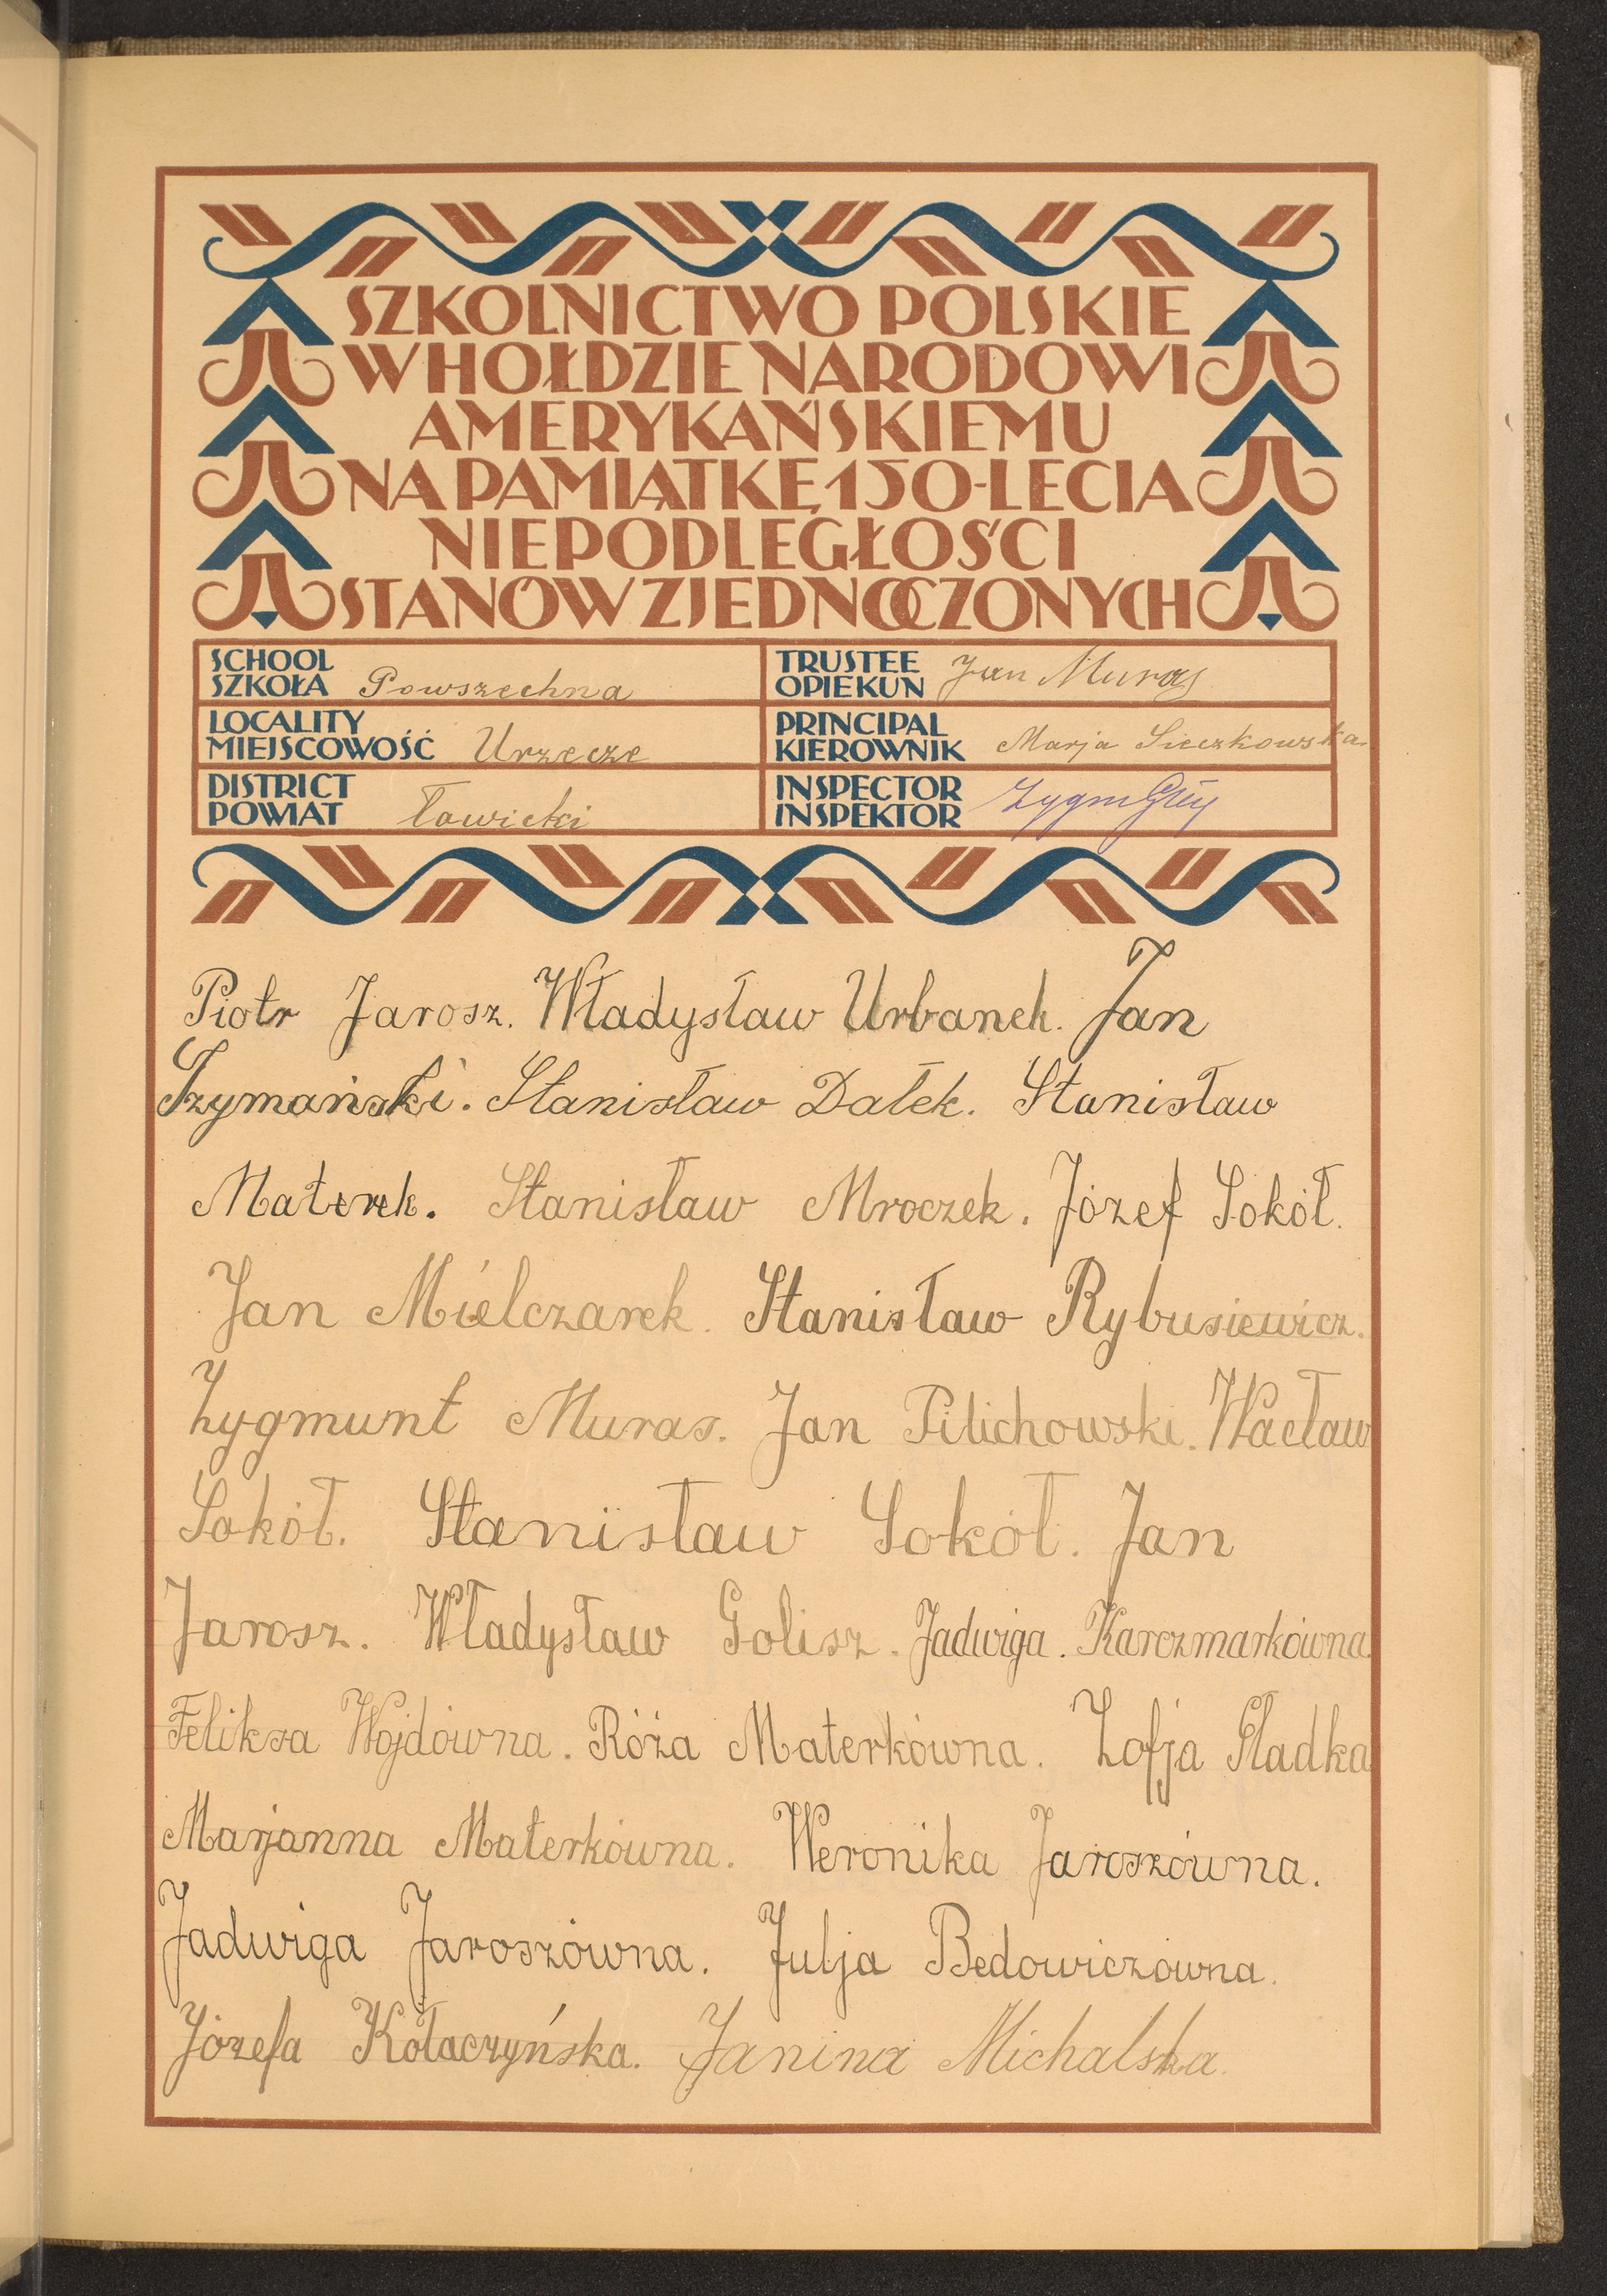 SZKOLNICTWO POLSKIE
W HOŁDZIE NARODOWI
AMERYKAŃSKIEMU
NA PAMIĄTKĘ 150-LECIA
NIEPODLEGŁOŚCI
STANÓW ZJEDNOCZONYCH
SCHOOL
SZKOŁA Powszechna
TRUSTEE
OPIEKUN Jan Muras
LOCALITY
MIEJSCOWOŚĆ Urzecze
PRINCIPAL
KIEROWNIK Marja Sieczkowska
DISTRICT
POWIAT Łowicki
INSPECTOR
INSPEKTOR
Piotr Jarosz. Władysław Urbanek. Jan
Szymański. Stanisław Dałek. Stanisław
Materek. Stanisław Mroczek. Józef Sokół.
Jan Mielczarek. Stanisław Rybusiewicz.
Zygmunt Muras. Jan Pilichowski. Wacław
Sokół. Stanisław Sokół. Jan
Jarosz. Władysław Golisz. Jadwiga. Karczmarkówna.
Feliksa Wojdówna. Róża Materkówna. Zofja Gładka
Marjanna Materkówna. Weronika Jaroszówna.
Jadwiga Jaroszówna. Julja Bedowiczówna.
Józefa Kołaczyńska. Janina Michalska.